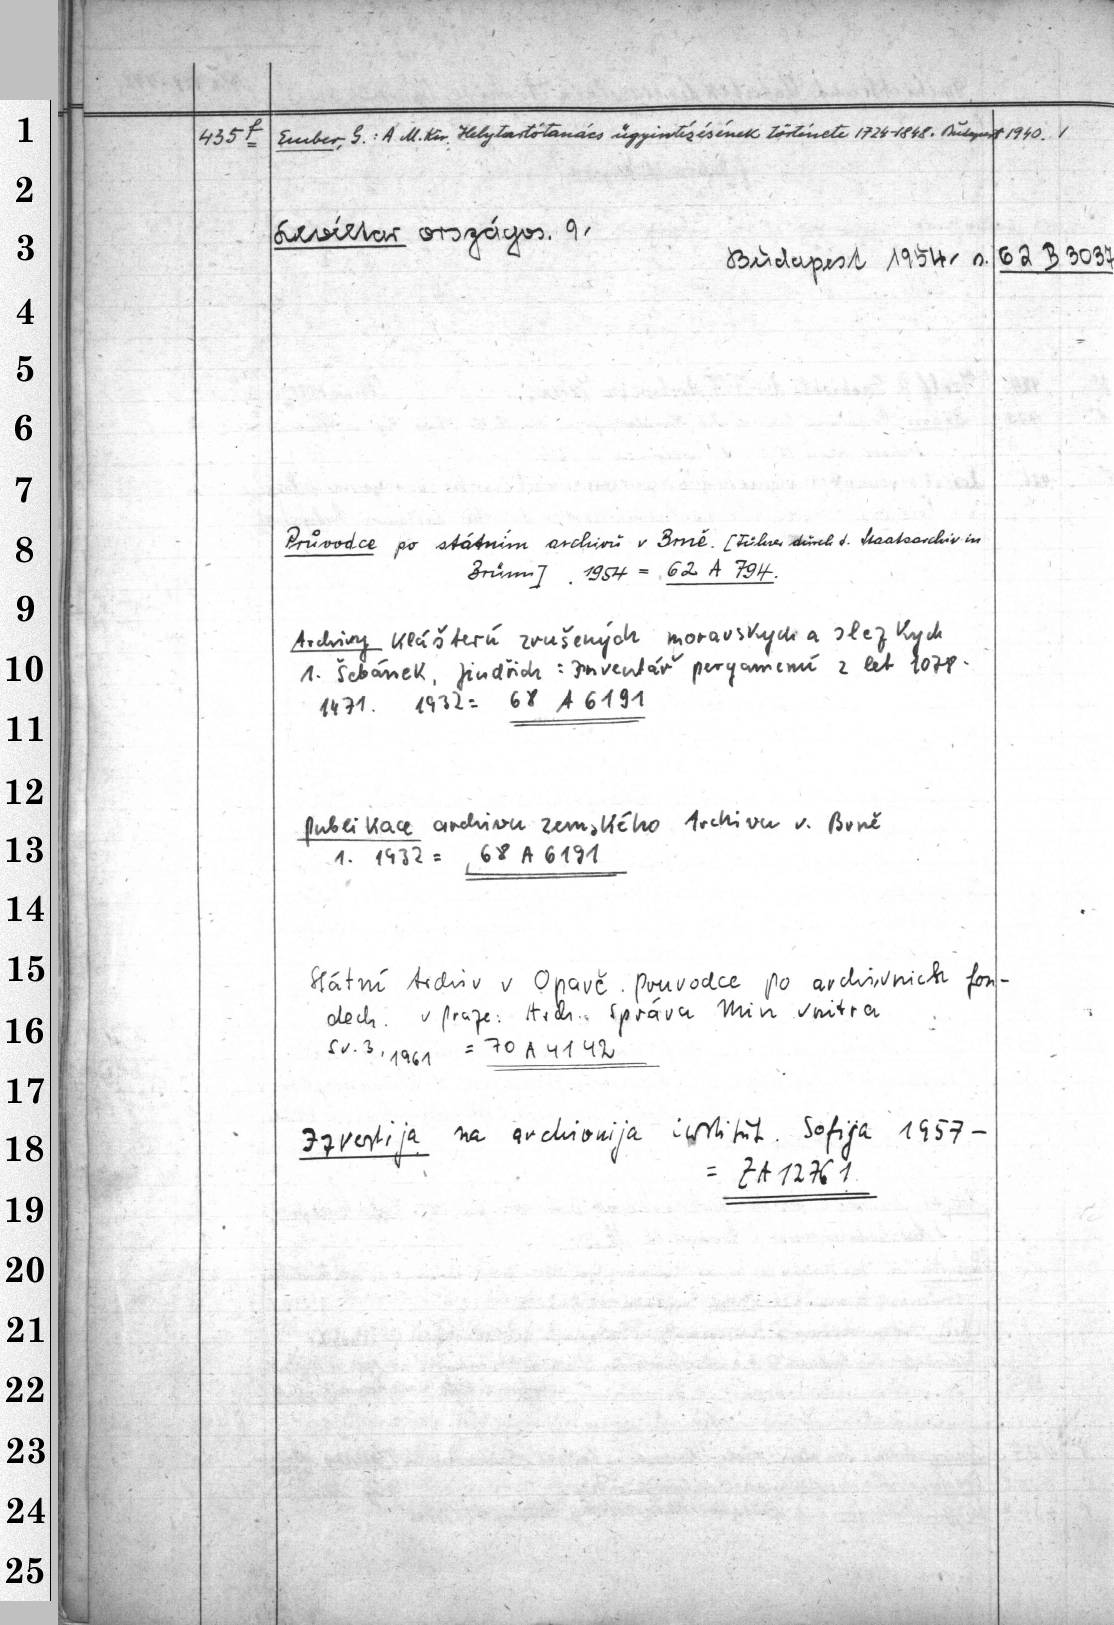 1
2
3
4
5
6
7
8
9
10
11
12
13
14
15
16
17
18
19
20
21
22
23
24
25
435 f Ember, G.: A M. Kir. Helytartótanács ügyintézésének története 1724-1848. Budapest 1940. /
Levéltar országos. 9.
Budapest 1954. n. 62 B 3037
Průvodce po státním archivů v Brně. [Führer durch d. Staatsarchiv in
Brünn] . 1954 = 62 A 794.
Archivy Klášterů zrušených moravskych a slezkych
1. Šebánek, Jindřich : Inventář pergamenů z let 1078-
1471. 1932 = 68 A 6191
Publikace archivu zemského Archivu v. Brně
1. 1932 = 68 A 6191
Státní Archiv v Opavě. Pruvodce po archivnich fon-
dech. v Praze: Arch.. Správa Min vnitra
Sv. 3, 1961 = 70 A 4142
Izvestija na archivnija institut. Sofija 1957-
= ZA 12761